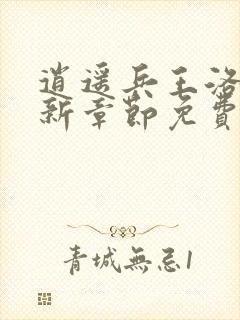 逍遥兵王洛
新章節免費
青城無忌1